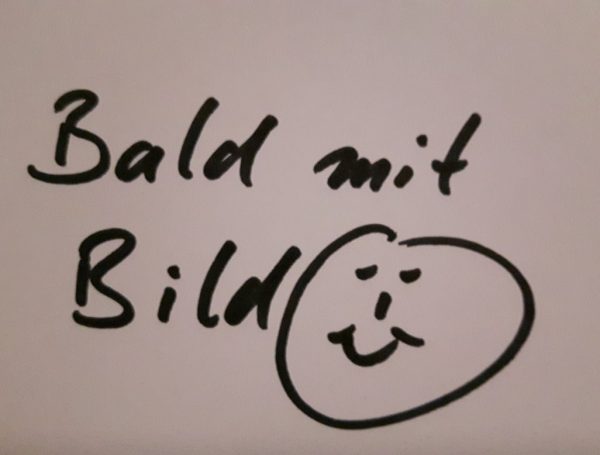 Bald mit
Bild